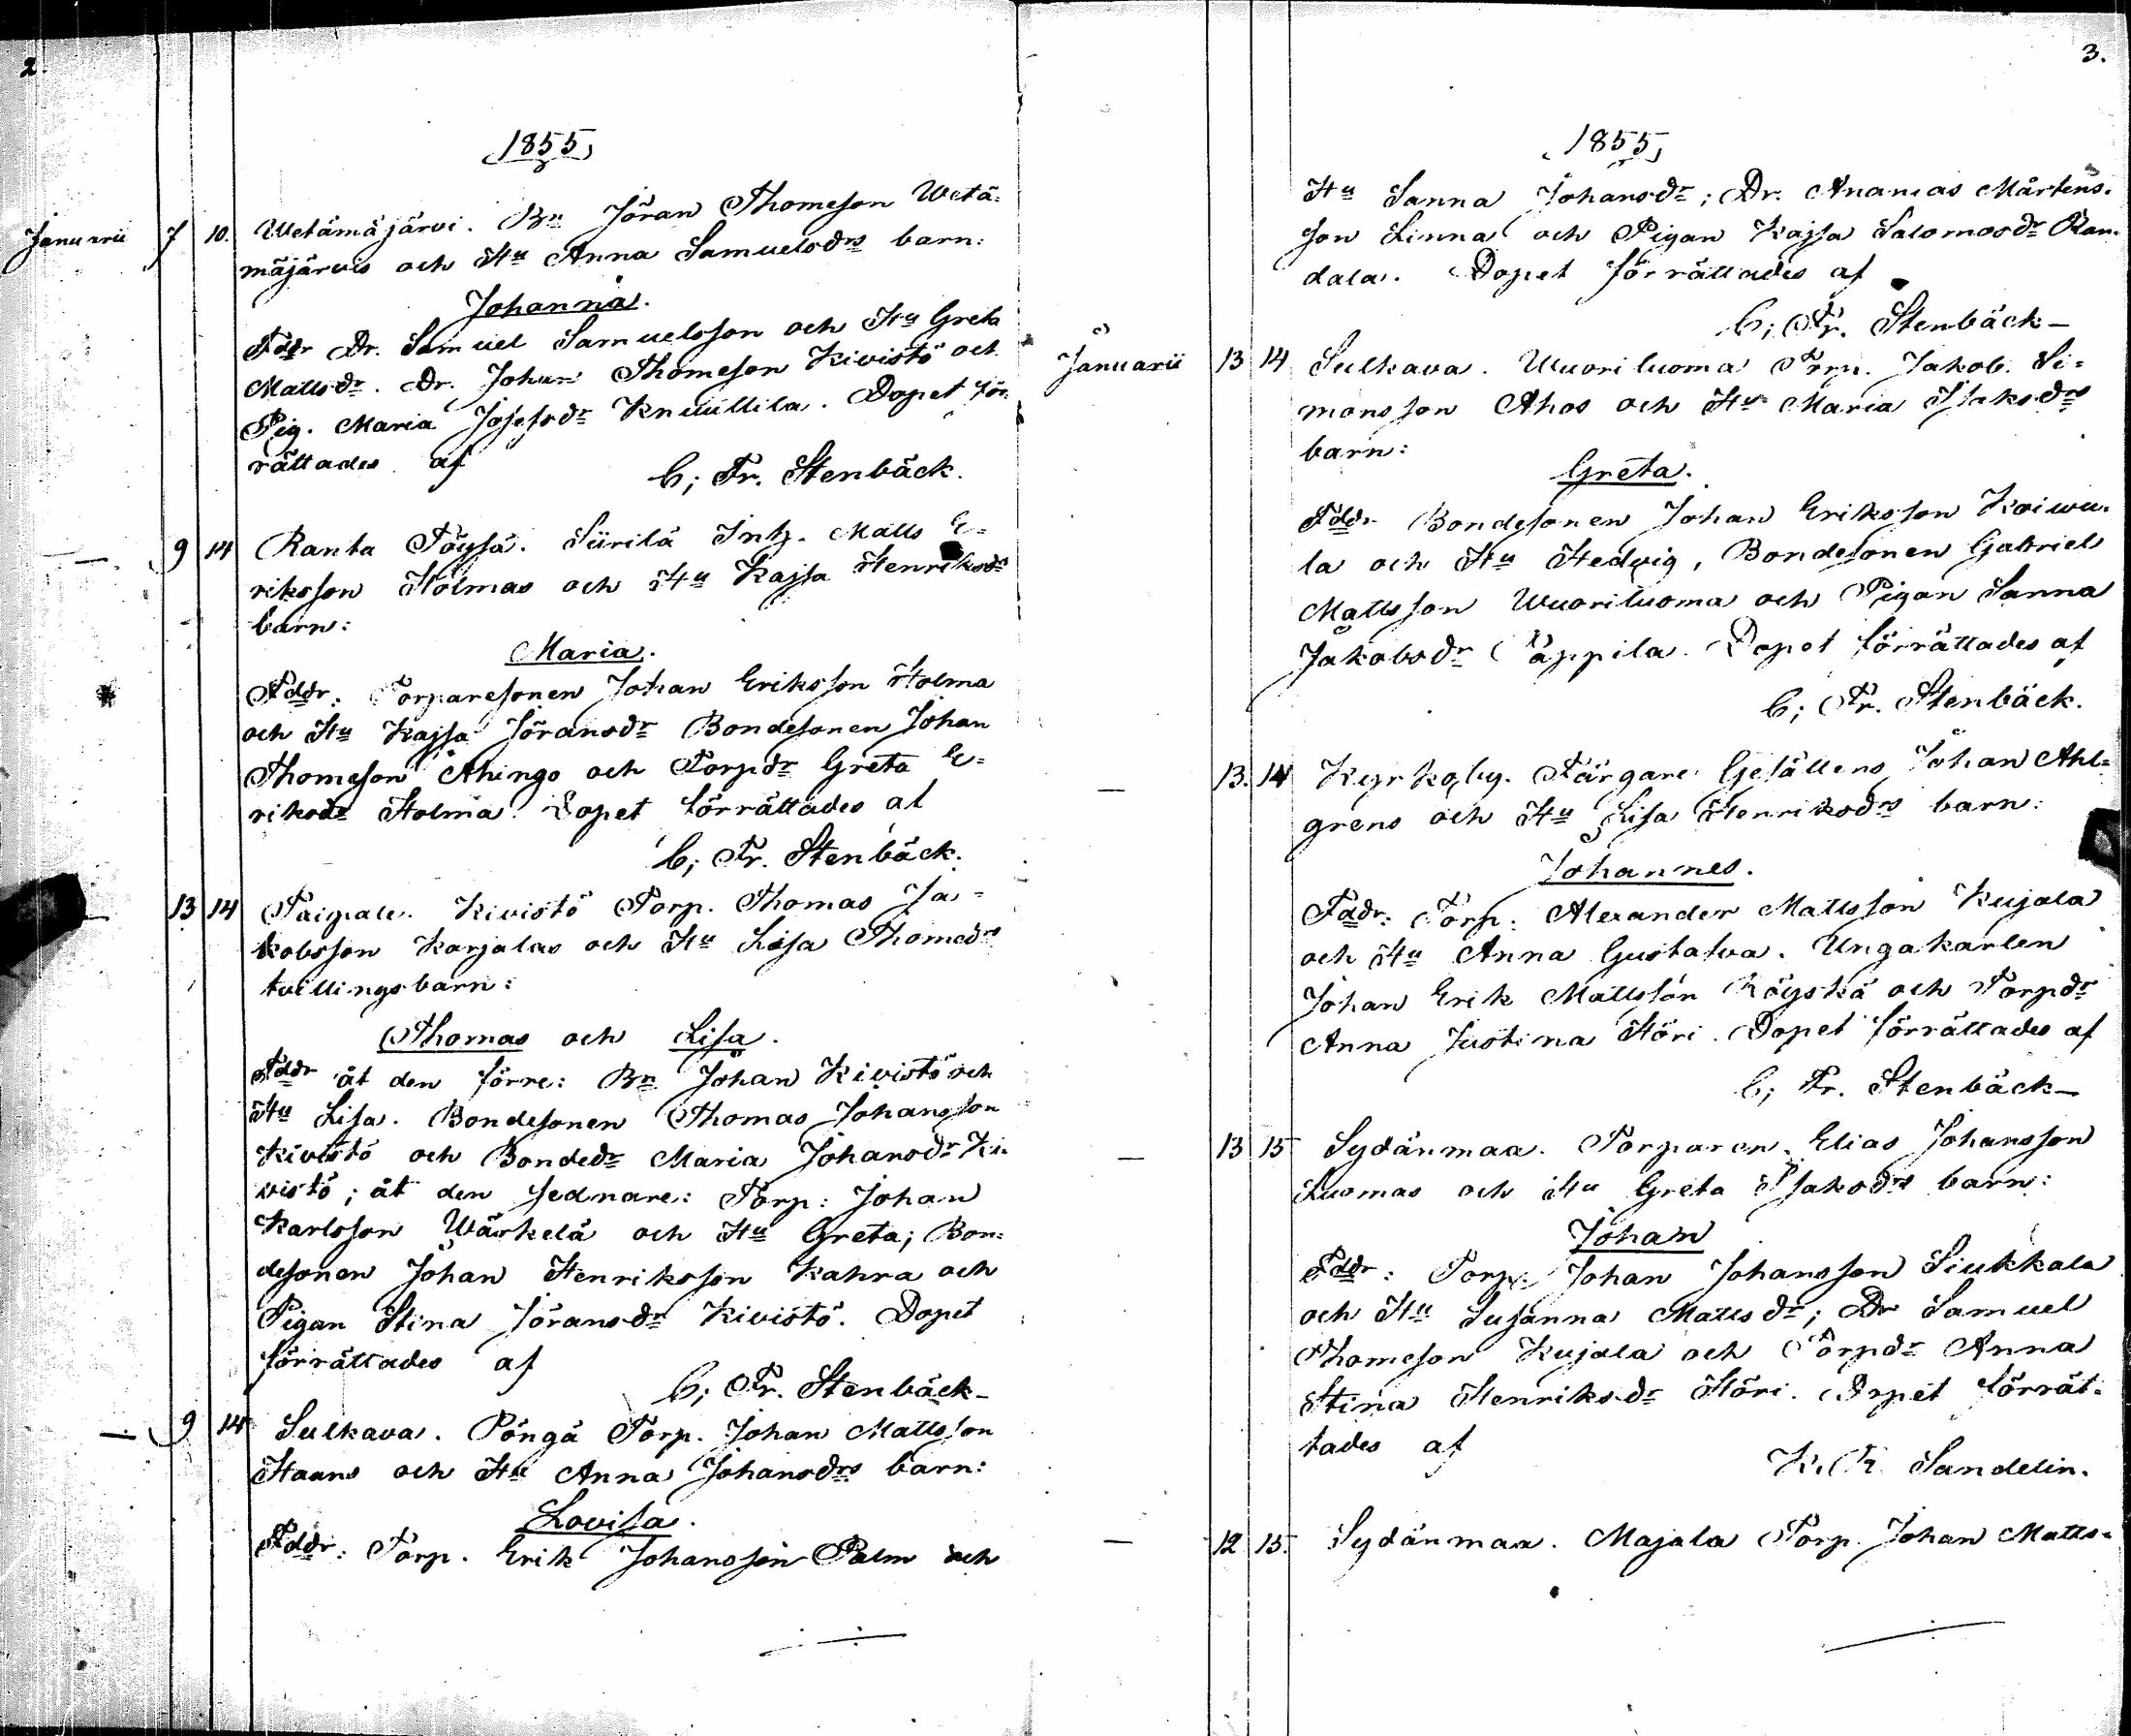 2.
1855
Januarii 7 10. Wetämäjärvi. Bn Jöran Thomeson Wetä=
mäjärvis och Hu Anna Samuelsdrs barn:
Johanna.
Fddr Dr. Samuel Samuelsson och Hu Greta
Mattsdr. Dr. Johan Thomeson Kivistö och
Pig. Maria Josefsdr Knuuttila. Dopet för=
rättades af
C; Fr. Stenbäck.
— 9 14 Ranta Töysä. Siirilä Inh. Matts E=
riksson Holmas och Hu Kajsa Henriksdrs
barn:
Maria.
Fddr: Torparesonen Johan Eriksson Holma
och Hu Kajsa Jöransdr Bondesonen Johan
Thomeson Ahingo och Torpdr Greta E=
riksdr Holma. Dopet förrättades af
C; Fr. Stenbäck.
— 13 14 Paipale. Kivistö Torp. Thomas Ja=
kobsson Karjalas och Hu Lisa Thomedrs
tvillingsbarn:
Thomas och Lisa.
Fddr åt den förre: Bn Johan Kivistö och
Hu Lisa. Bondesonen Thomas Johansson
Kivistö och Bondedr Maria Johansdr Ki=
vistö; åt den sednare: Torp: Johan
Karlsson Wärkelä och Hu Greta; Bon=
desonen Johan Henriksson Kahra och
Pigan Stina Jöransdr Kivistö. Dopet
förrättades af
C; Fr. Stenbäck—
— 9 14 Sulkava. Pöngä Torp. Johan Mattsson
Haans och Hu Anna Johansdrs barn:
Lovisa.
Fddr: Torp. Erik Johansson Palm och
3.
1855
Hu Sanna Johansdr; Dr. Ananias Mårtens=
son Linna och Pigan Kajsa Salomosdr Ran=
dala. Dopet förrättades af
C; Fr. Stenbäck—
Januarii 13 14 Sulkava. Wuoriluoma Torp. Jakob Si=
monsson Ahos och Hu Maria Isaksdrs
barn:
Greta.
Fddr Bondesonen Johan Eriksson Koiwu=
la och Hu Hedvig, Bondesonen Gabriel
Mattsson Wuoriluoma och Pigan Sanna
Jakobsdr Pappila. Dopet förrättades af
C; Fr. Stenbäck.
— 13. 14 Kyrkoby. Färgare Gesällens Johan Ahl=
grens och Hu Lisa Henriksdrs barn:
Johannes.
Fddr: Torp: Alexander Mattsson Kujala
och Hu Anna Gustafva. Ungakarlen
Johan Erik Mattsson Röyskä och Torpdr
Anna Justina Höri. Dopet förrättades af
C; Fr. Stenbäck—
— 13 15 Sydänmaa. Torparen Elias Johansson
Luomas och Hu Greta Isaksdrs barn:
Johan
Fddr: Torp: Johan Johansson Siukkala
och Hu Susanna Mattsdr; Dr Samuel
Thomeson Kujala och Torpdr Anna
Stina Henriksdr Höri. Dopet förrät=
tades af
K. Sandelin.
— 12 15. Sydänmaa. Majala Torp. Johan Matts=